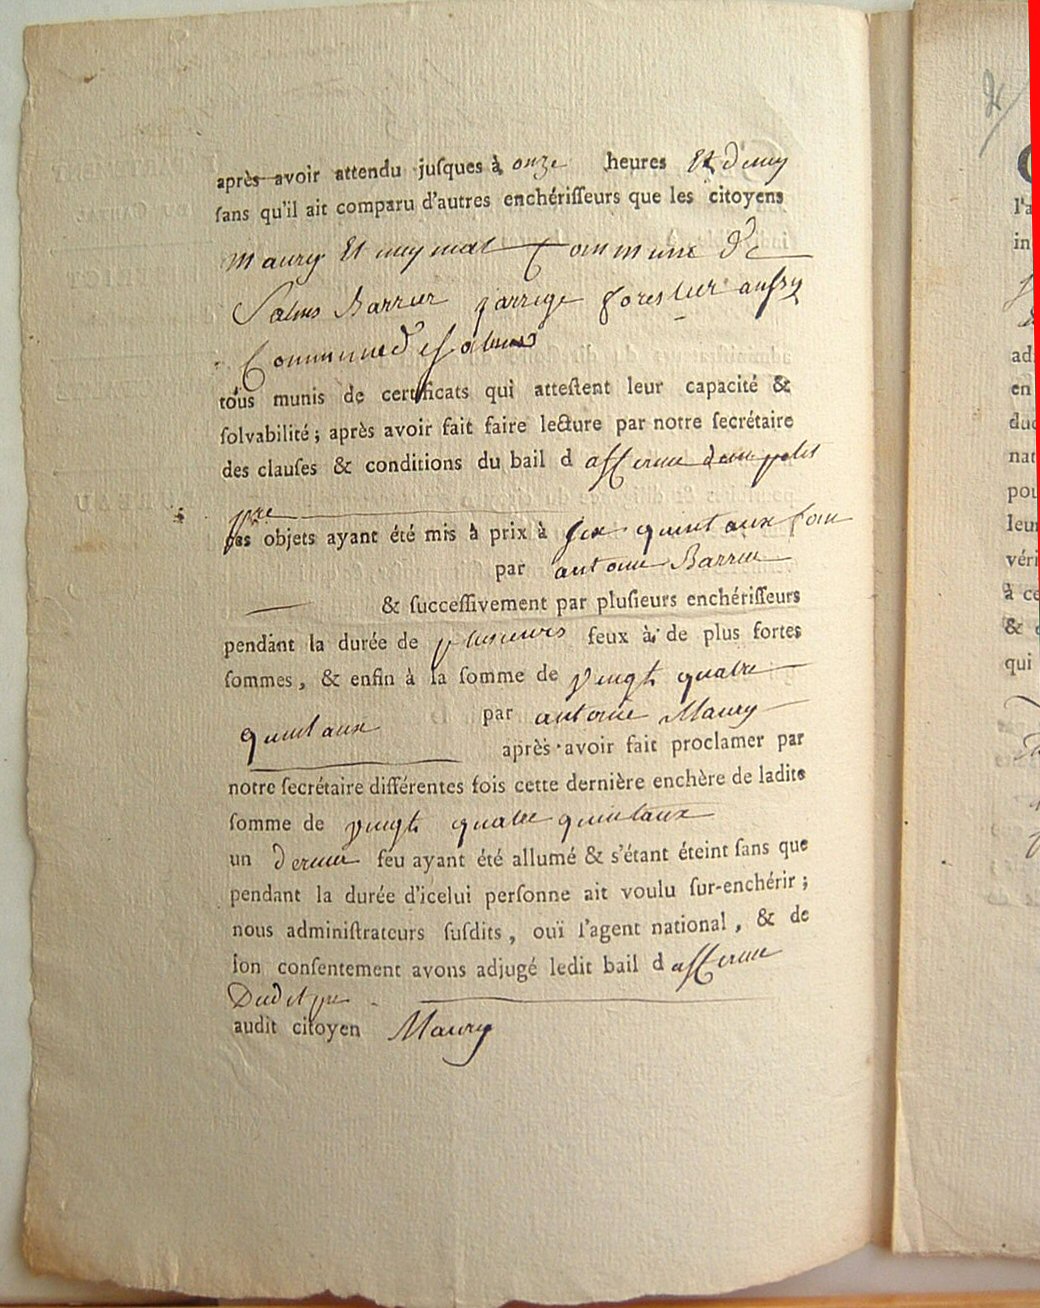 après avoir attendu juſques à onze heures Et demy
ſans qu'il ait comparu d'autres enchériſſeurs que les citoyens
Maury Et meymat Commune De
Salins Barrier jarrige forestier aussy
Commune de Salins
tous munis de certificats qui atteſtent leur capacité &
ſolvabilité ; après avoir fait faire lecture par notre ſecrétaire
des clauſes & conditions du bail d afferme dun petit
pré
ſes objets ayant été mis à prix à six quintaux foin
par antoine Barrier
& ſucceſſivement par pluſieurs enchériſſeurs
pendant la durée de plusieurs feux à de plus fortes
ſommes, & enfin à la ſomme de vingt quatre
quintaux par antoine Maury
après avoir fait proclamer par
notre ſecrétaire différentes fois cette dernière enchère de ladite
ſomme de vingt quatre quintaux
un dernier feu ayant été allumé & s'étant éteint ſans que
pendant la durée d'icelui perſonne ait voulu ſur-enchérir ;
nous adminiſtrateurs ſuſdits, ouï l'agent national, & de
ſon conſentement avons adjugé ledit bail d afferme
Dudit pré
audit citoyen Maury